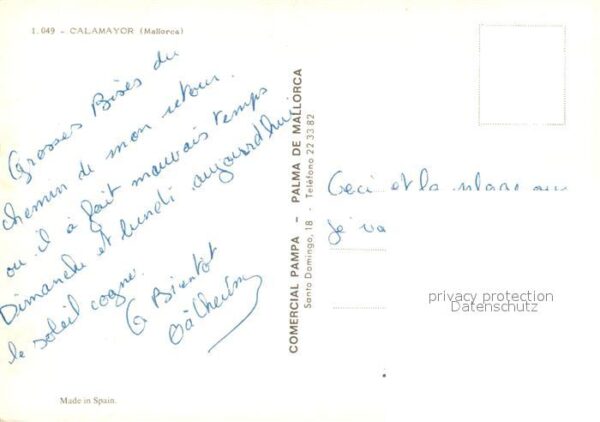 1.049 - CALAMAYOR (Mallorca)
Grosses Bises du
chemin de mon retour.
ou il à fait mauvais temps
Dimanche et lundi. aujourd'hui
le soleil cogne.
a Bientot
Made in Spain.
COMERCIAL PAMPA - PALMA DE MALLORCA
Santo Domingo, 18 - Teléfono 22 33 82
Ceci et la
je va
privacy protection
Datenschutz